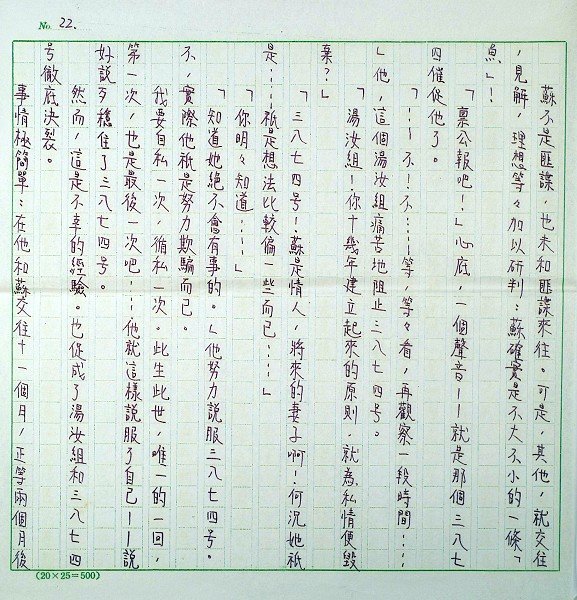 No. 22.
蘇不是匪諜，也未和匪諜來往。可是，其他，就交往
，見解，理想等々加以研判：蘇確實是不大不小的一條「
魚」！
「稟公報吧！」心底，一個聲音——就是那個三八七
四催促他了。
「……不！不……等，等々看，再觀察一段時間……
」他，這個湯汝組痛苦地阻止三八七四号。
「湯汝組！你十幾年建立起來的原則，就為私情便毀
棄？」
「三八七四号！蘇是情人，將來的妻子啊！何況她祇
是……祇是想法比較偏一些而已……」
「你明々知道……」
「知道她絕不會有事的。」他努力說服三八七四号。
不，實際他祇是努力欺騙而已。
我要自私一次，循私一次。此生此世，唯一的一回，
第一次，也是最後一次吧……他就這樣說服了自己——說
好說歹穩住了三八七四号。
然而，這是不幸的經驗。也促成了湯汝組和三八七四
号徹底決裂。
事情極簡單：在他和蘇交往十一個月，正等兩個月後
(20×25＝500)